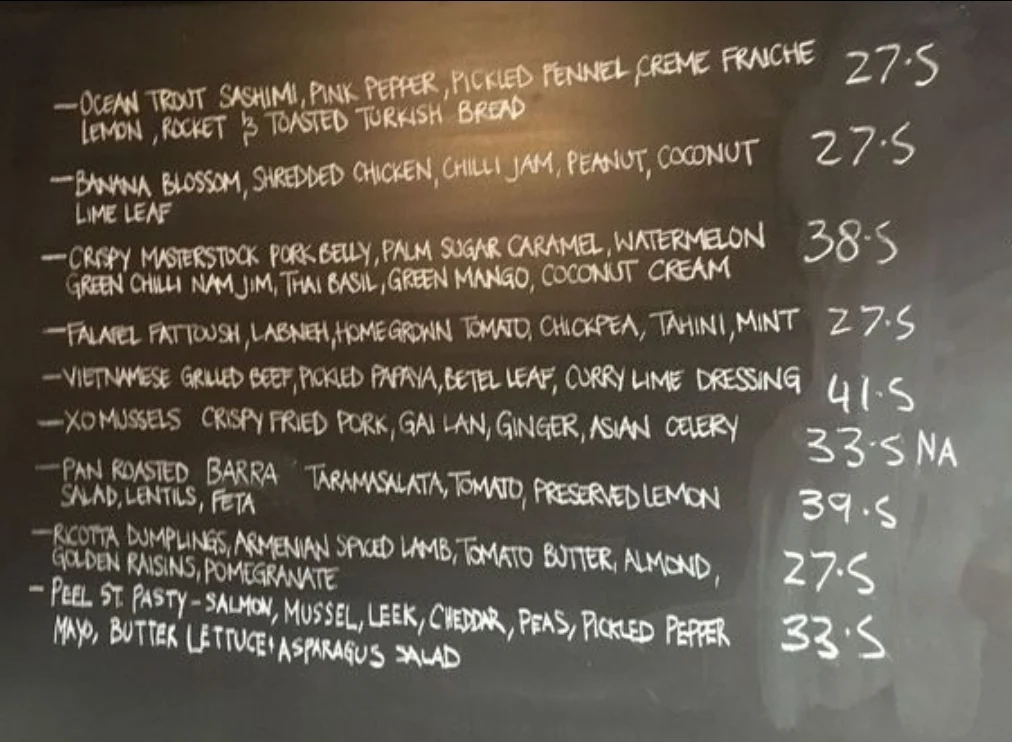 - OCEAN TROUT SASHIMI, PINK PEPPER, PICKLED FENNEL, CREME FRAICHE 27.5
LEMON, ROCKET & TOASTED TURKISH BREAD
- BANANA BLOSSOM, SHREDDED CHICKEN, CHILLI JAM, PEANUT, COCONUT 27.5
LIME LEAF
- CRISPY MASTERSTOCK PORK BELLY, PALM SUGAR CARAMEL, WATERMELON 38.5
GREEN CHILLI NAM JIM, THAI BASIL, GREEN MANGO, COCONUT CREAM
- FALAFEL FATTOUSH, LABNEH, HOMEGROWN TOMATO, CHICKPEA, TAHINI, MINT 27.5
- VIETNAMESE GRILLED BEEF, PICKLED PAPAYA, BETEL LEAF, CURRY LIME DRESSING 41.5
- XO MUSSELS CRISPY FRIED PORK, GAI LAN, GINGER, ASIAN CELERY 33.5 NA
- PAN ROASTED BARRA TARAMASALATA, TOMATO, PRESERVED LEMON 39.5
SALAD, LENTILS, FETA
- RICOTTA DUMPLINGS, ARMENIAN SPICED LAMB, TOMATO BUTTER, ALMOND, 27.5
GOLDEN RAISINS, POMEGRANATE
- PEEL ST. PASTY - SALMON, MUSSEL, LEEK, CHEDDAR, PEAS, PICKLED PEPPER 33.5
MAYO, BUTTER LETTUCE + ASPARAGUS SALAD